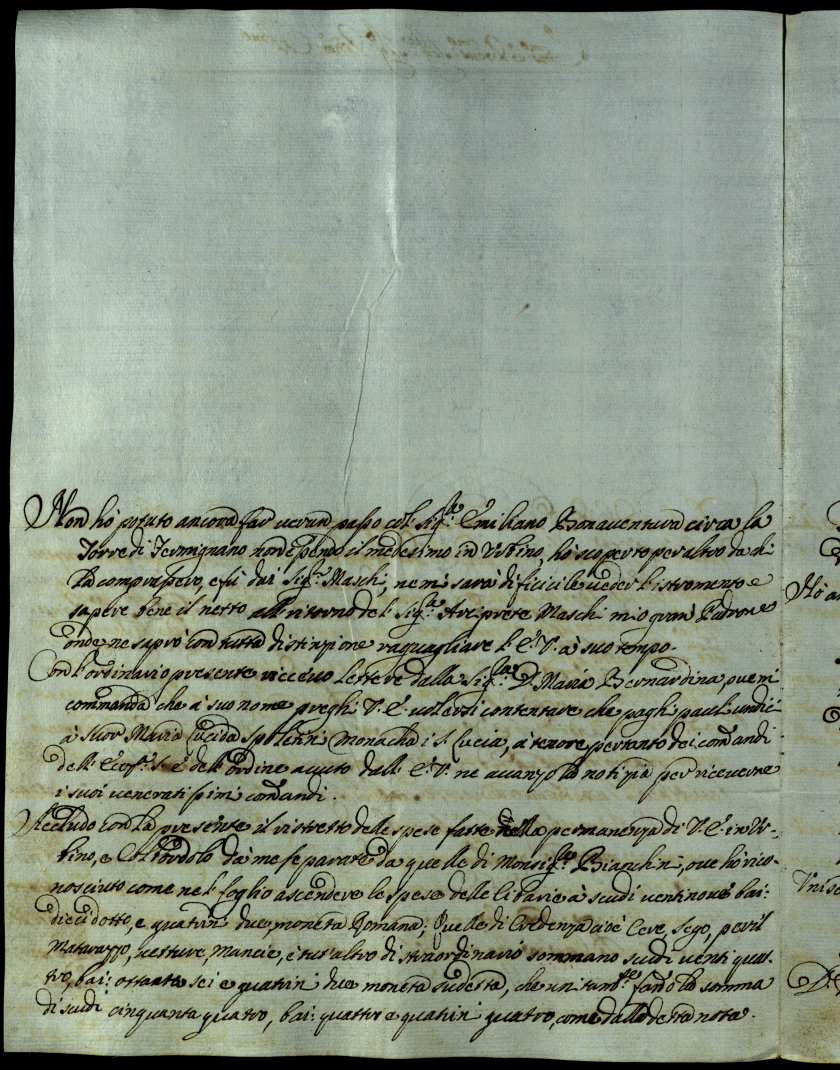 Non hò potuto ancora far verun passo col Sig.re Emiliano Bonaventura circa la
Torre di Fermignano non essendo il medesimo in Urbino, hò scoperto per altro da chi
la comprassero, e fù dai Sig.ri Maschi, ne mi sarà dificile veder l'istromento e
sapere bene il netto all ritorno del Sig.re Arciprete Maschi mio gran Padrone
onde ne saprò con tutta distinzione raguagliare l'E. V. à suo tempo.
Con l'ordinario presente ricevuo lettere dalla Sig.ra D. Maria Bernardina, que mi
commanda che à suo nome preghi V. E. volersi contentare che paghi pauli undici
à Suor Maria Lucida Spolenni Monacha i S. Lucia, à tenore pertanto dei com̃andi
dell' e dell'ordine avuto dall' E. V. ne avanzo la notizia per riceverne
i suoi veneratissimi com̃andi.
Accludo con la presente il ristretto delle spese fatte nella permanenza di V. E. in Ur-
bino, e da me separate da quelle di Monsig.re Bianchini, ove hò rico-
nosciuto come nel foglio ascendere le spese delle Cibarie à scudi ventinove bai:
dieci dotto, e quatrini due moneta Romana; Quelle di Credenza cioè Cere, Sego, per il
Matarazzo, vetture, mancie, e tut'altro di straordinario sommano scudi venti quat-
tro, bai: ottanta sei e quatrini due moneta sudetta, che unitam.te fanno la somma
di scudi cinquanta quatro, bai: quattro e quatrini quatro, come dalla detta nota.
Hò